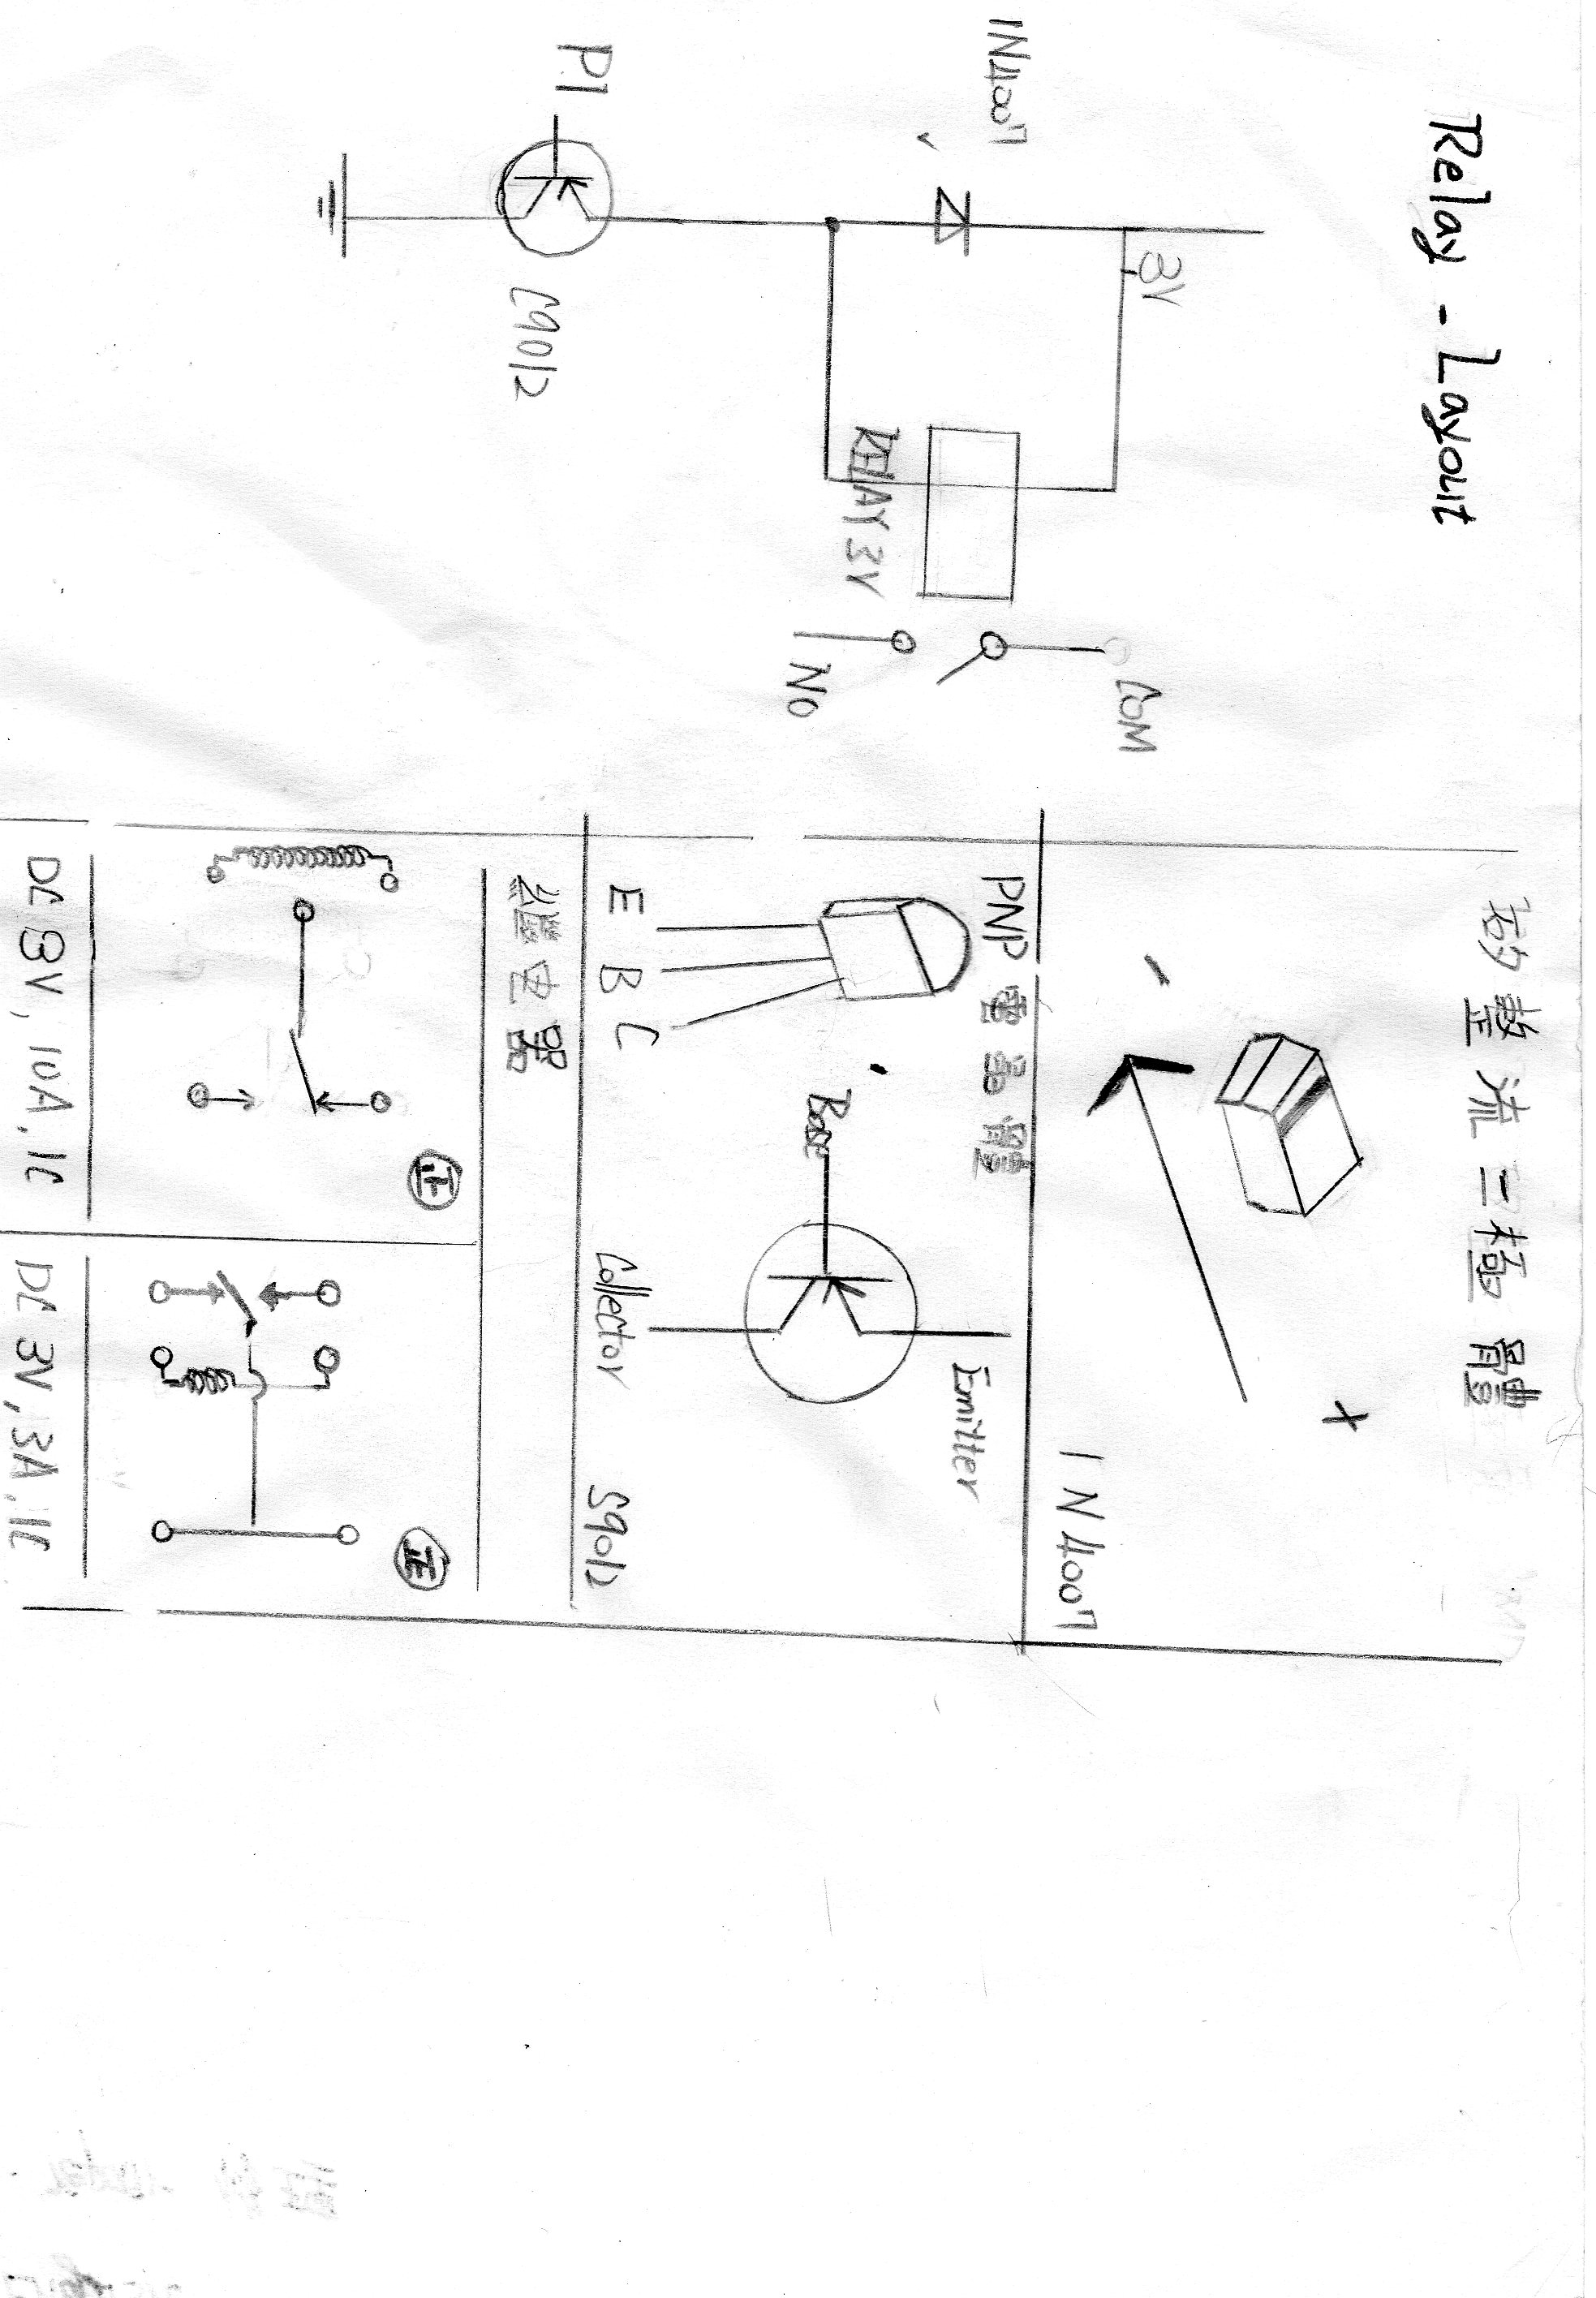 Relay - Layout
3V
COM
1N4007
RELAY 3V
NO
P1
C9012
矽整流二極體
+
-
1N4007
PNP 電晶體
Emitter
Base
E B C
Collector
S9012
繼电器
正
正
DC 3V, 10A, 1C
DC 3V, 3A, 1C